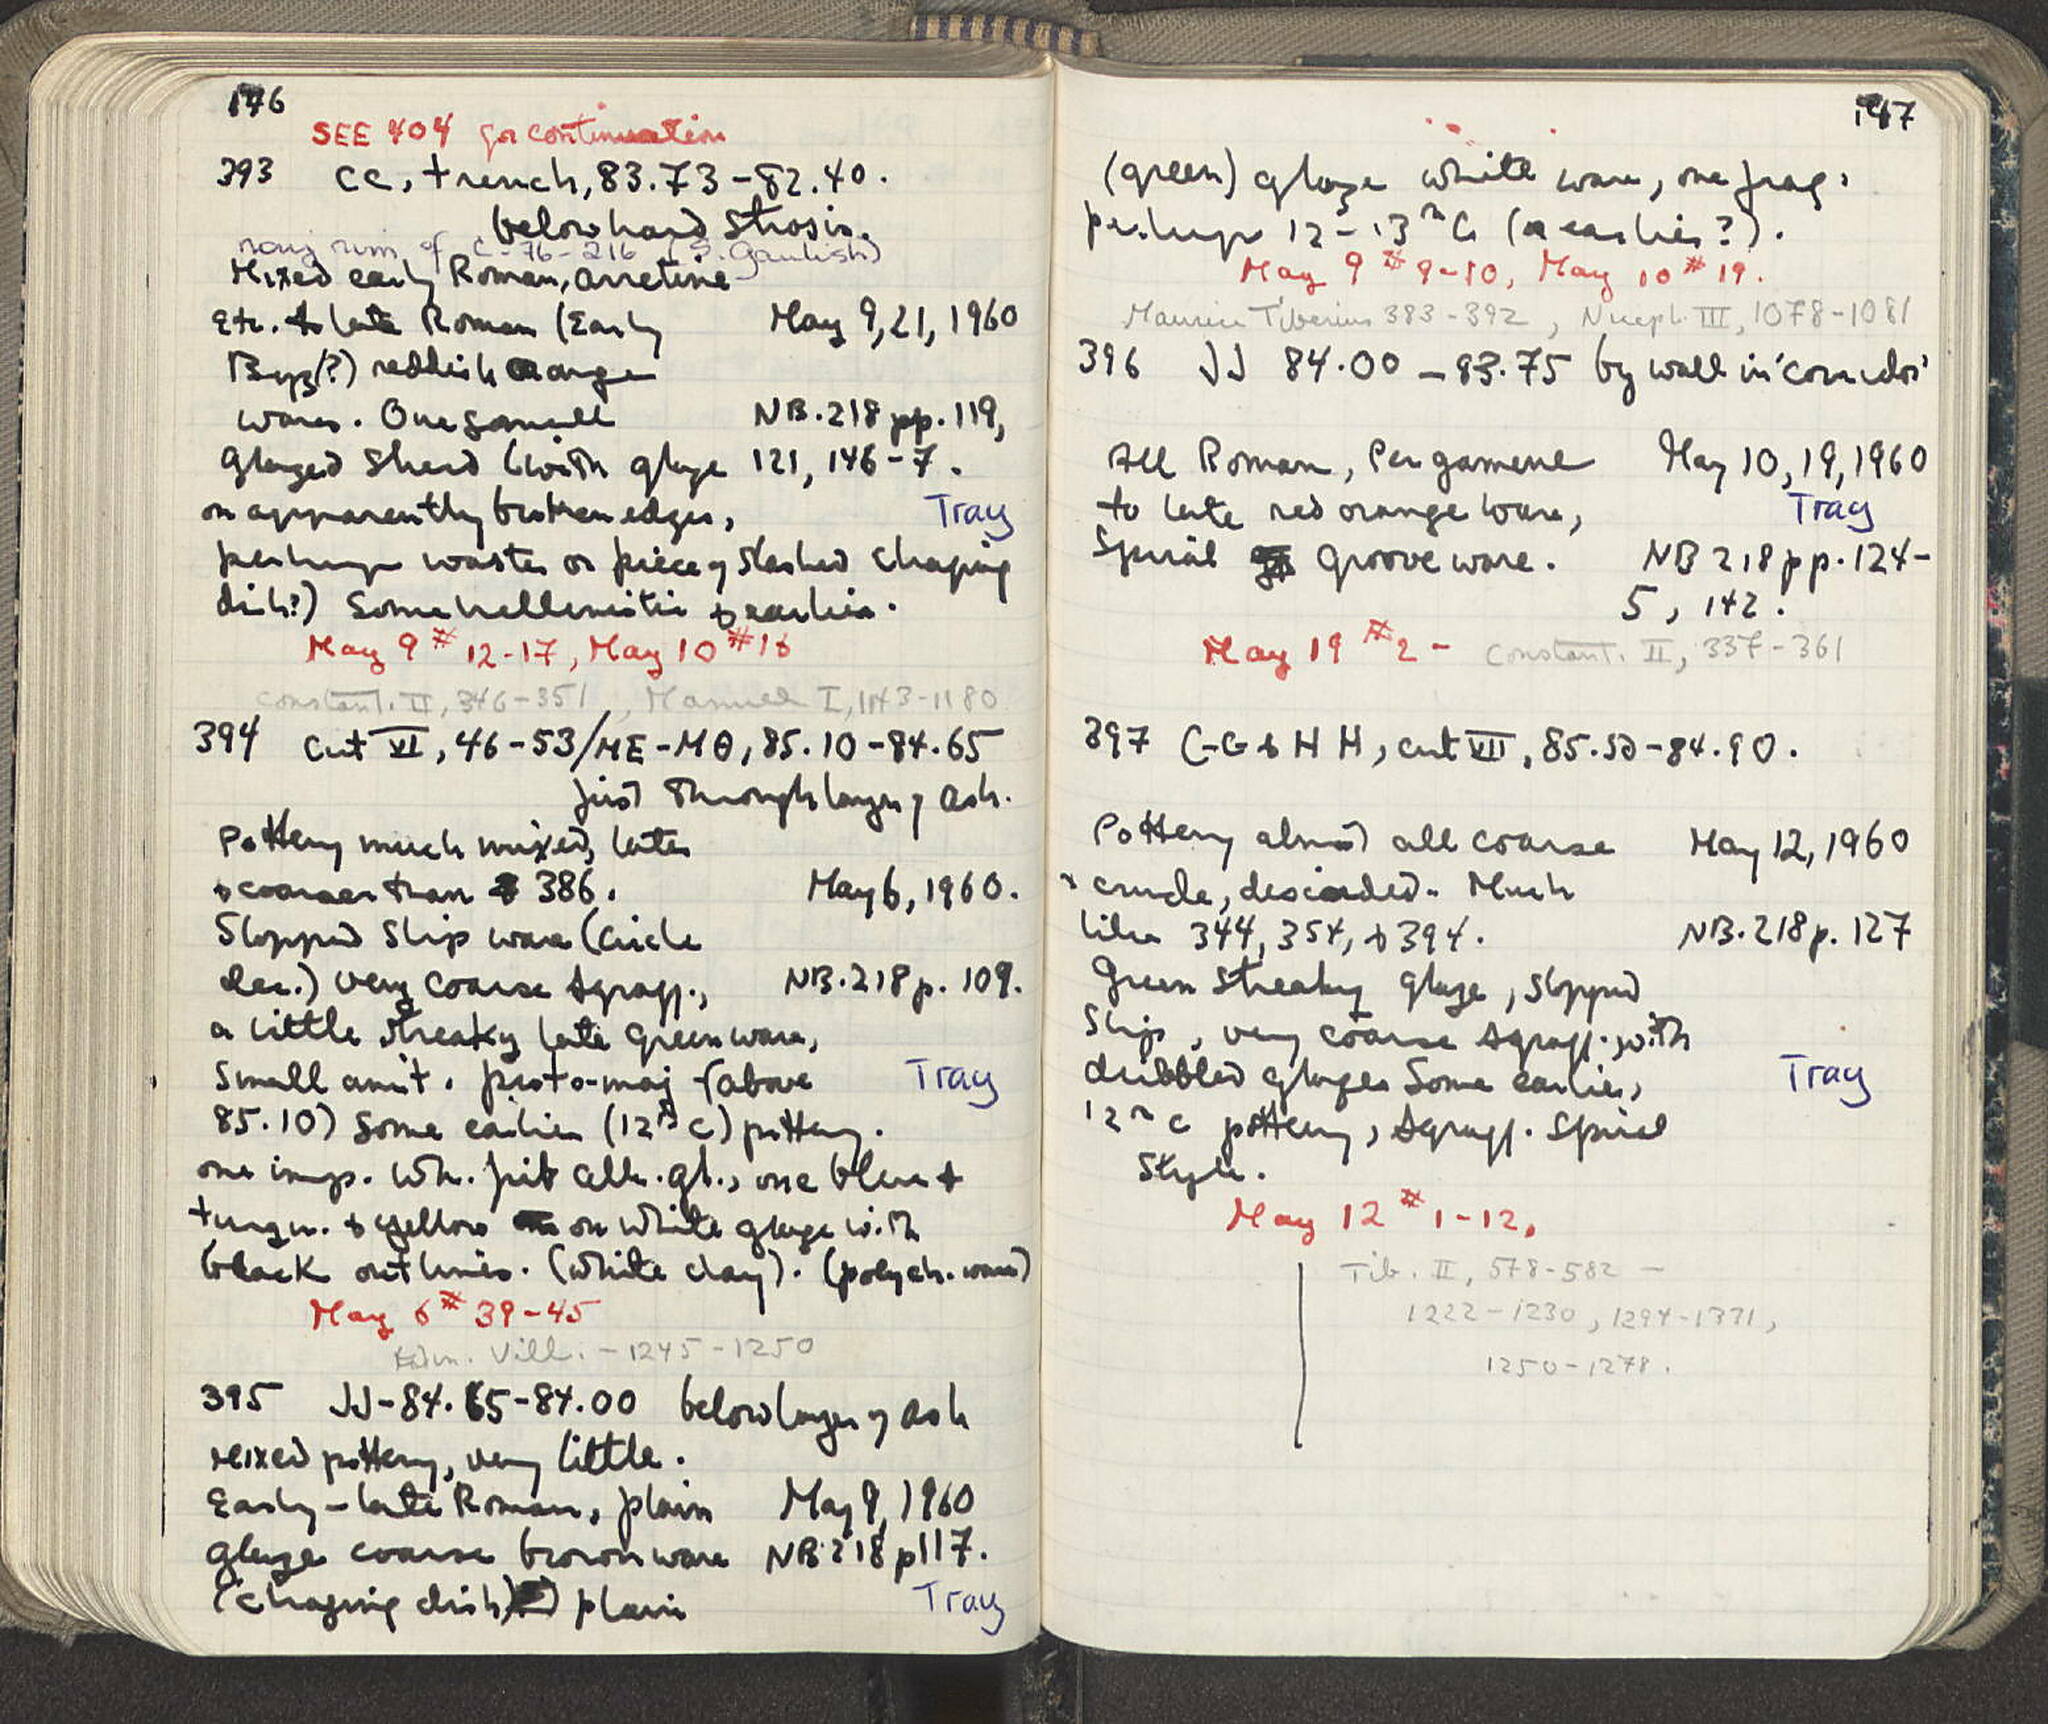 146
SEE 404 for continuation
393 CC, trench, 83.73-82.40.
below hard strosis.
rim of C-76-216 (S. Gaulish)
Mixed early Roman, arretine
Etc. to late Roman (Early May 9, 21, 1960
Byz(?) reddish orange
wares. One small NB. 218 pp. 119,
glazed sherd (with glaze 121, 146-7.
on apparently broken edges, Tray
perhaps waster or piece of slashed chafing
dish?) Some hellenistic & earlier.
May 9 # 12-17, May 10 # 18
Constant. II, 346-351, Manuel I, 1143-1180
394 Cut VI, 46-53/ME-MΘ, 85.10-84.65
just through layer of ash.
Pottery much mixed, later
& coarser than 386. May 6, 1960.
Slopped slip ware (circle
dec.) very coarse sgraff., NB. 218 p. 109.
a little streaky late green ware,
small amt. proto-maj (above Tray
85.10) Some earlier (12th C) pottery.
one imp. wh. frit alk. gl., one blue +
turqu. & yellow on white glaze with
black outlines. (white clay). (polych. ware)
May 6 # 39-45
Vill. - 1245-1250
395 JJ-84.65-84.00 below layer of ash
Mixed pottery, very little.
Early-late Roman, plain May 9, 1960
glaze coarse brown ware NB 218 p 117.
(chafing dish) plain Tray
147
(green) glaze white ware, one frag.
perhaps 12-13th C (or earlier?).
May 9 # 9-10, May 10 # 19.
Maurice Tiberius 383-392, Niceph. III, 1078-1081
396 JJ 84.00-83.75 by wall in 'corridor'
All Roman, Pergamene May 10, 19, 1960
to late red orange ware, Tray
Spiral groove ware. NB 218 pp. 124-
5, 142.
May 19 # 2 - Constant. II, 337-361
397 GG & HH, cut VII, 85.50-84.90.
Pottery almost all coarse May 12, 1960
& crude, discarded. Much
like 344, 354, & 394. NB. 218 p. 127
Green streaky glaze, slopped
slip, very coarse sgraff. with
dribbled glazes Some earlier, Tray
12th C pottery, sgraff. spiral
style.
May 12 # 1-12,
Tib. II, 578-582 -
1222-1230, 1294-1331,
1250-1278.